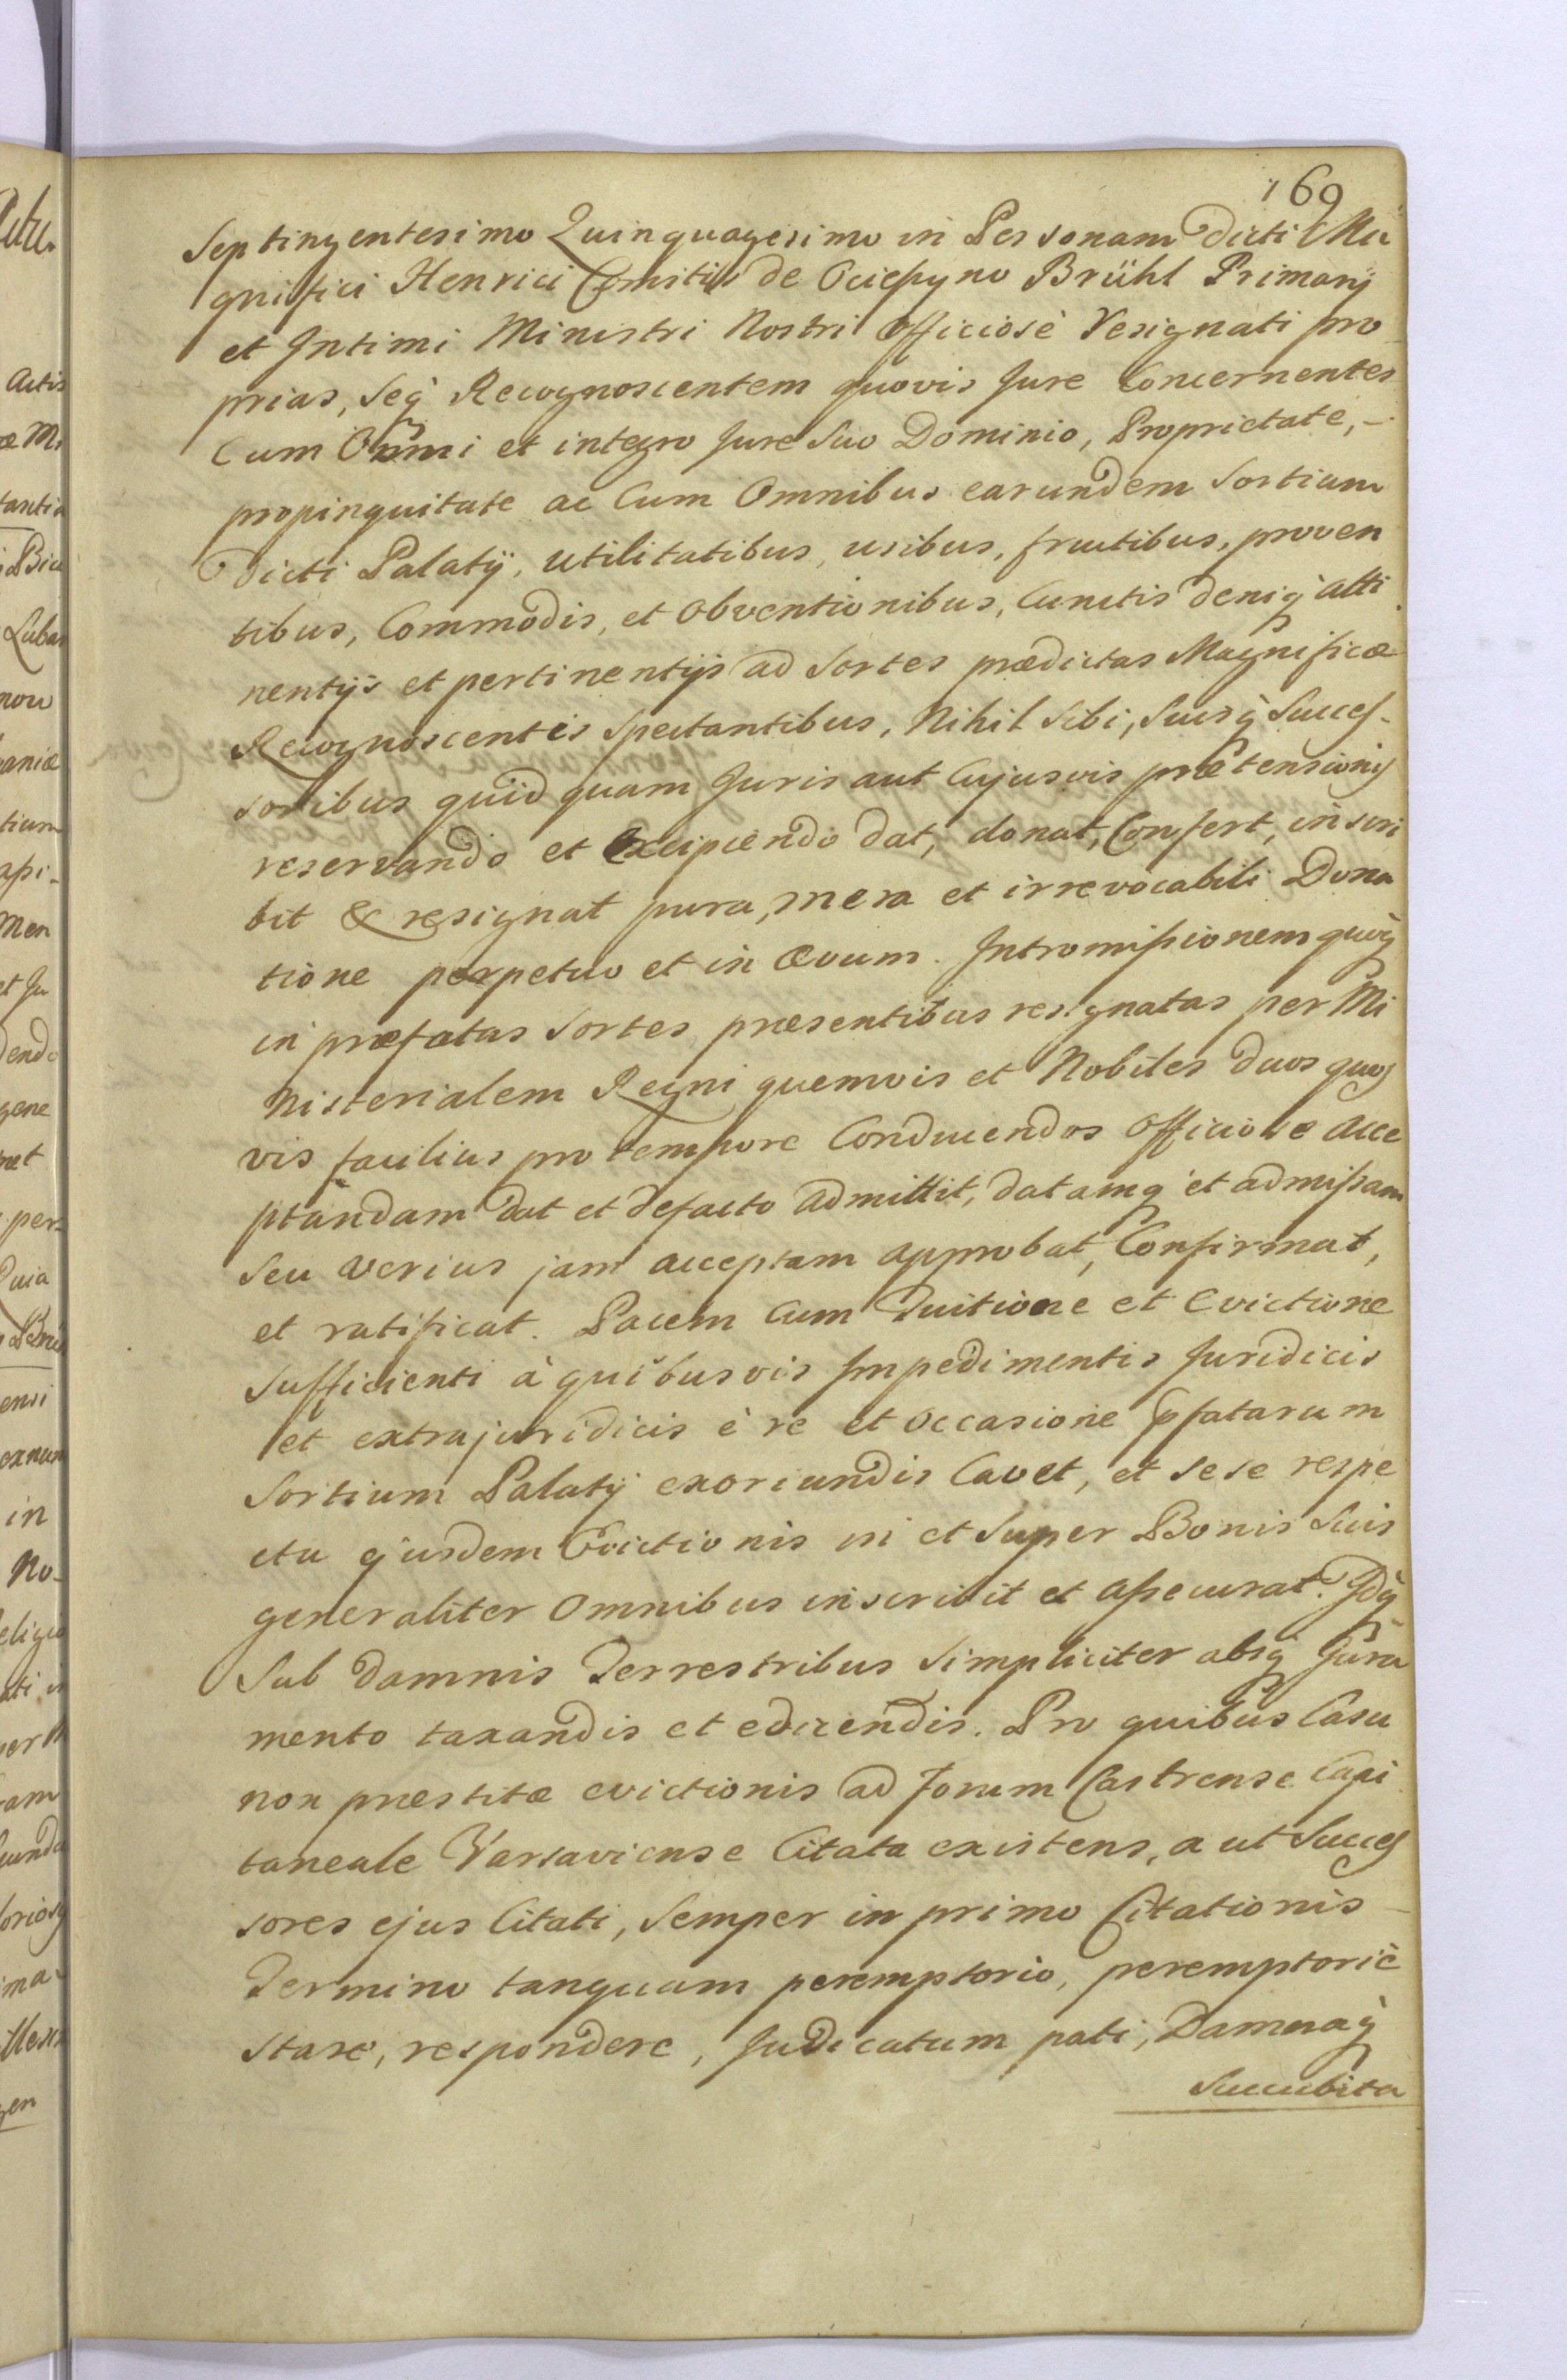 169
Septingentesimo Quinquagesimo in Personam Dicti Ma
gnifici Henrici Comitis de Ocieszyno Brühl Primarÿ
et Intimi Ministri Nostri Officiosè Resignati pro
prias, Seq̀ Recognoscentem quovis Jure Concernentes
Cum Omni et integro Jure Suo Dominio, Proprietate, –
propinquitate ac Cum Omnibus earundem Sortium
Dicti Palatÿ, utilitatibus, usibus, fructibus, proven
tibus, Commodis, et Obventionibus, Cunctis deniq̀ atti
nentÿs et pertinentÿs ad Sortes prædictas Magnificæ
Recognoscentis Spectantibus, Nihil Sibi, Suisq̀ Succes-
soribus quidquam Juris aut Cujusvis prætensionis
reservando et Excipiendo dat, donat, Confert, inscri
bit & resignat pura, mera et irrevocabili Dona
tione perpetuo et in ævum. Intromissionem quoq̀
in præfatas Sortes præsentibus resignatas per Mi
nisterialem Regni quemvis et Nobiles duos quos
vis facilius pro tempore Conducendos Officiose acce
ptandam dat et defacto admittit, datamq̀ et admissam
Seu verius jam acceptam approbat, Confirmat,
et ratificat. Pacem Cum Tuitione et Evictione
Sufficienti à quibusvis Impedimentis Juridicis
et extrajuridicis è re et occasione pfatarum
Sortium Palatÿ exoriundis Cavet, et sese respe
ctu ejusdem Evictionis in et Super Bonis Suis
generaliter Omnibus inscribit et assecurat. Idq̀
Sub damnis Terrestribus Simpliciter absq̀ Jura
mento taxandis et edicendis. Pro quibus Casu
non præstitæ evictionis ad forum Castrense Capi
taneale Varsaviense Citata existens, aut Succes
sores ejus Citati, Semper in primo Citationis –
Termino tanquam peremptorio, peremptoriè
stare, respondere, Judicatum pati, Damnaq̀
Succubita